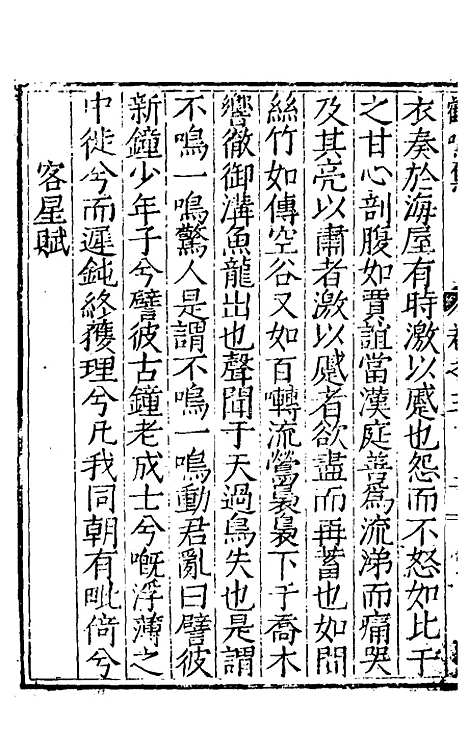 衣奏於海屋有時激以慼也怨而不怒如比干
之甘心剖腹如賈誼當漢庭善爲流涕而痛哭
及其亮以肅者激以慼者欲盡而再蓄也如聞
絲竹如傳空谷又如百囀流鶯裊裊下于喬木
響徹御溝魚龍出也聲聞于天過鳥失也是謂
不鳴一鳴驚人是謂不鳴一鳴動君亂曰譬彼
新鐘少年子兮譬彼古鐘老成士兮嘅浮薄之
中徙兮而遲鈍終獲理兮凡我同朝有毗倚兮
客星賦